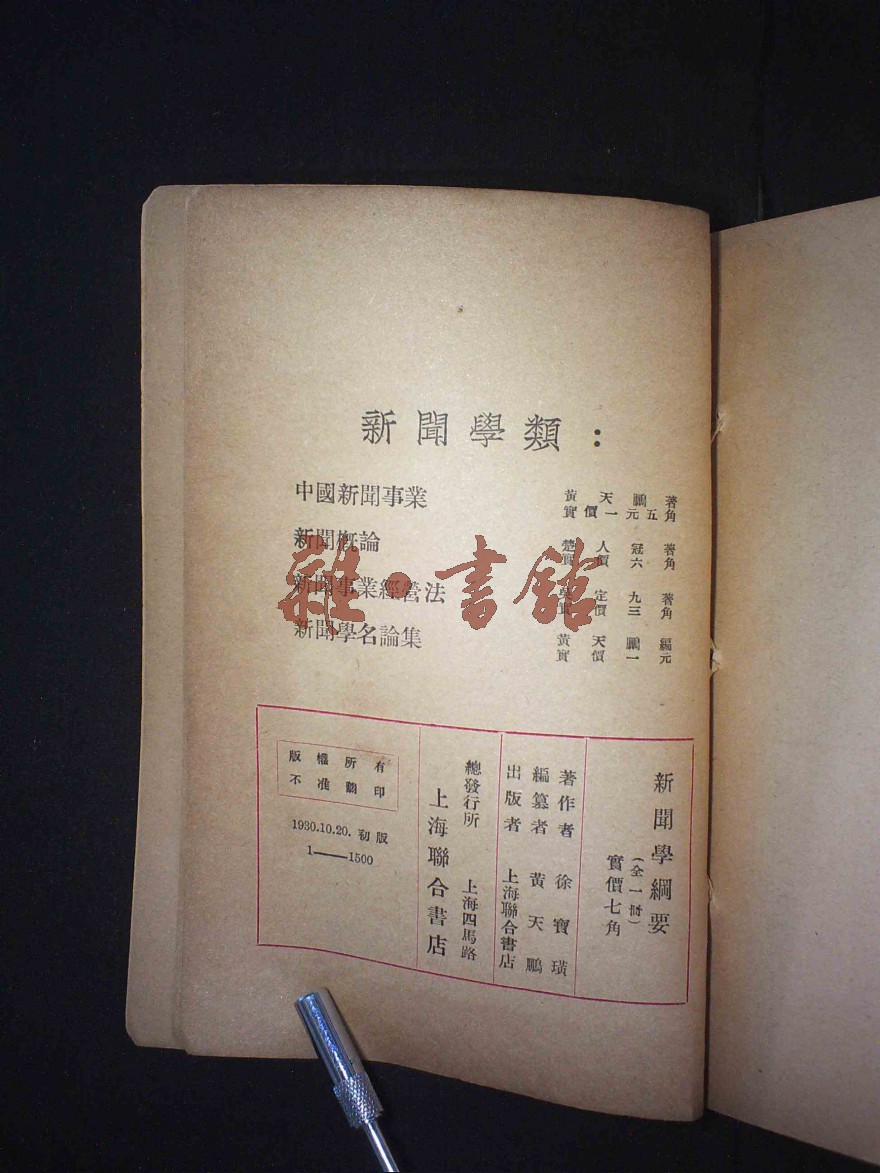 新聞學類：
中國新聞事業 黃天鵬著
實價一元五角
新聞概論 楚人冠著
實價六角
新聞事業經營法 吳定九著
實價三角
新聞學名論集 黃天鵬編
實價一元
雜·書館
新聞學綱要
（全一冊）
實價七角
著作者 徐寶璜
編纂者 黃天鵬
出版者 上海聯合書店
總發行所 上海四馬路
上海聯合書店
版權所有
不准翻印
1930.10.20. 初版
1——1500